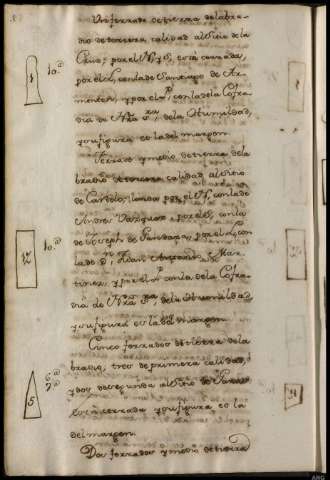 Un ferrado de tierra de labra-
dio de tercera calidad al Sitio de la
por el N. y S. esta cerrada,
por el L. con la de Santiago de Ar-
menteros, y por el P. con la de la Cofra-
dia de Nra. Sra. de la Humildad,
y su figura es la del margen.
1
10.a
Ferrado y medio de tierra de la-
bradio de tercera calidad al Sitio
de por el N. con la de
Andres Vazquez por el S. con la
de Joseph de por el L. con
la de D.n Juan Antonio Mar-
tinez, y por el P. con la de la Cofra-
dia de Nra. Sra. de la Humildad,
y su figura es la del margen.
12
10.a
Cinco ferrados de tierra de la-
bradio, tres de primera calidad,
y dos de segunda al Sitio de
cerrada y su figura es la
del margen.
5
Dos ferrados y medio de tierra